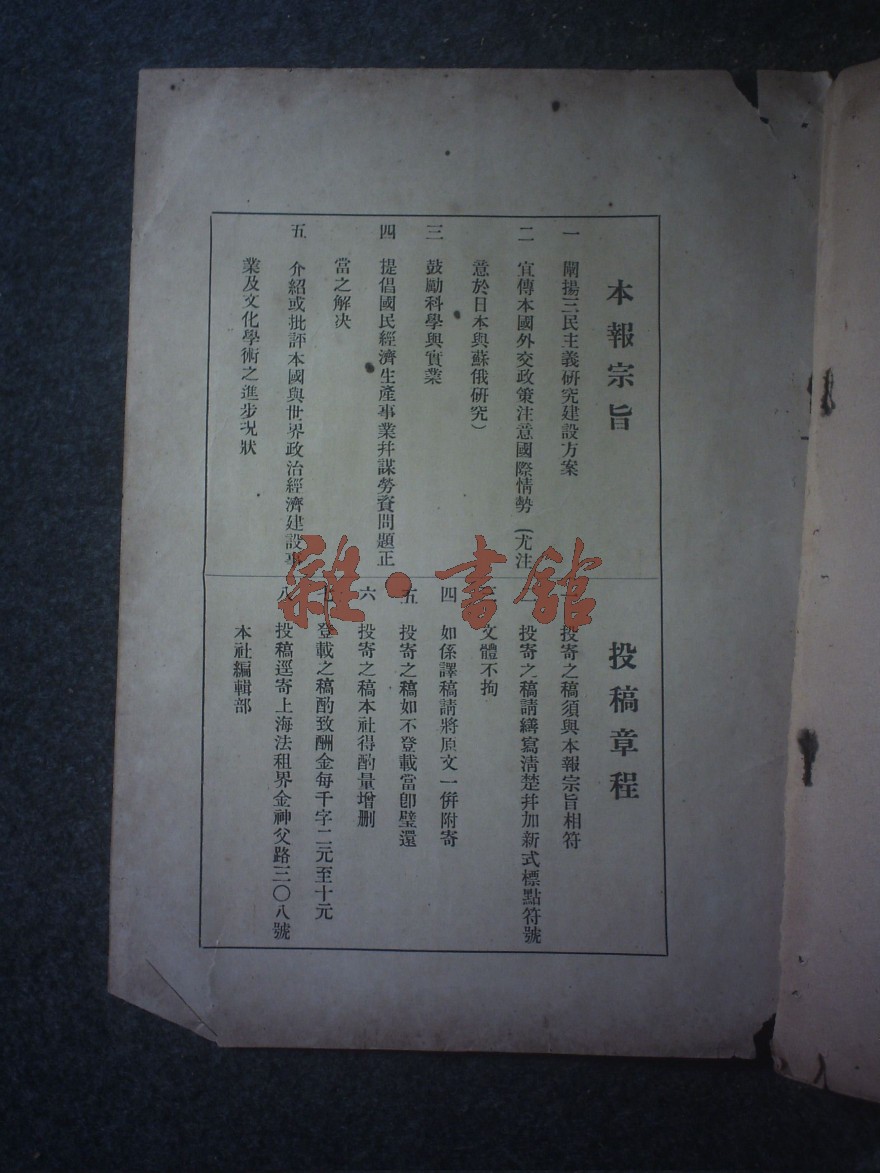 本報宗旨
一 闡揚三民主義研究建設方案
二 宣傳本國外交政策注意國際情勢（尤注
意於日本與蘇俄研究）
三 鼓勵科學與實業
四 提倡國民經濟生產事業幷謀勞資問題正
當之解决
五 介紹或批評本國與世界政治經濟建設事
業及文化學術之進步現狀
投稿章程
一 投寄之稿須與本報宗旨相符
二 投寄之稿請繕寫清楚幷加新式標點符號
三 文體不拘
四 如係譯稿請將原文一倂附寄
五 投寄之稿如不登載當卽璧還
六 投寄之稿本社得酌量增刪
七 登載之稿酌致酬金每千字二元至十元
八 投稿逕寄上海法租界金神父路三〇八號
本社編輯部
雜·書館